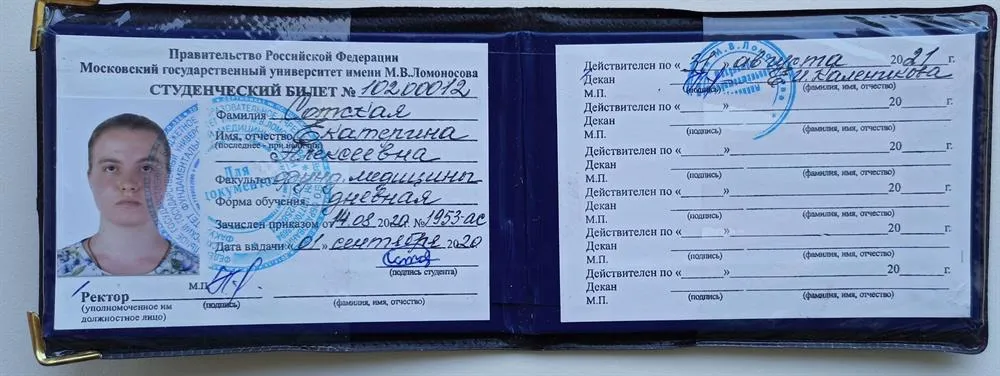 Правительство Российской Федерации
Московский государственный университет имени М.В.Ломоносова
СТУДЕНЧЕСКИЙ БИЛЕТ № 10200012
Фамилия Сотская
Имя, отчество Екатерина
(последнее - при наличии)
Алексеевна
Факультет фунд. медицины
Форма обучения, дневная
Зачислен приказом от 14.08 2020. № 1953-ас
Дата выдачи «01» сентября 2020
(подпись студента)
М.П.
Ректор
(подпись) (фамилия, имя, отчество)
(уполномоченное им
должностное лицо)
Действителен по «31» августа 2021 г.
Декан
М.П. (подпись) (фамилия, имя, отчество)
Действителен по « » 20 г.
Декан
М.П. (подпись) (фамилия, имя, отчество)
Действителен по « » 20 г.
Декан
М.П. (подпись) (фамилия, имя, отчество)
Действителен по « » 20 г.
Декан
М.П. (подпись) (фамилия, имя, отчество)
Действителен по « » 20 г.
Декан
М.П. (подпись) (фамилия, имя, отчество)
Действителен по « » 20 г.
М.П. (подпись) (фамилия, имя, отчество)